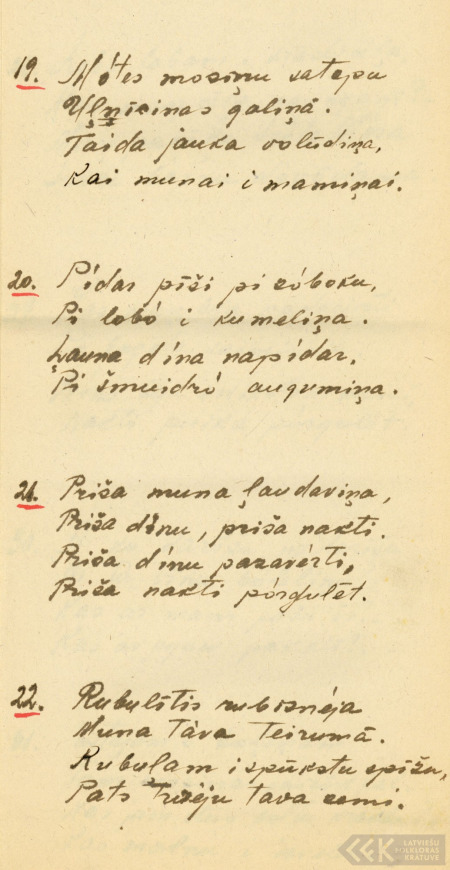 19. Mótes mosiņu satapu
Uļņicinas galiņâ.
Taida jauka volūdiņa,
Kai munai i mamiņai.
20. Pídar pīši pi zóboku,
Pi lobó i kumeliņa.
Ļauna dína napídar,
Pi šmuidró augumiņa.
21. Priša muna ļaudaviņa,
Priša dínu, priša nakti.
Priša dínu pazavérti,
Priša nakti pórgulēt.
22. Rubulītis rubisnéja
Muna Táva Teirumâ.
Rubuļam ispūkstu spīžu,
Pats Trišéju tava semi.
LATVIEŠU
FOLKLORAS
KRĀTUVE